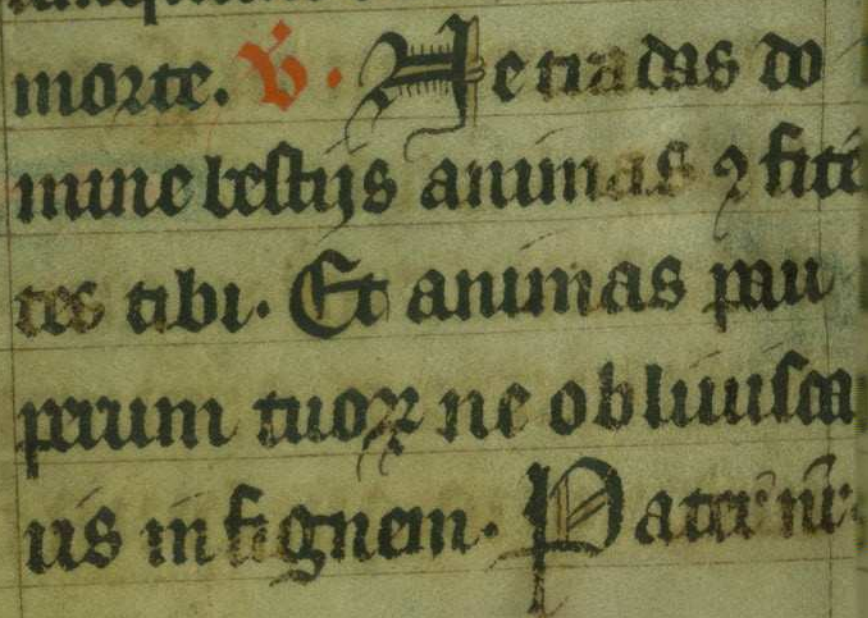 morte. V̄. Ne tradas do
mine bestijs animas ꝯfitē
tes tibi. Et animas pau
perum tuoꝝ ne obliuisca
ris in fi gnem. Pater nr̄